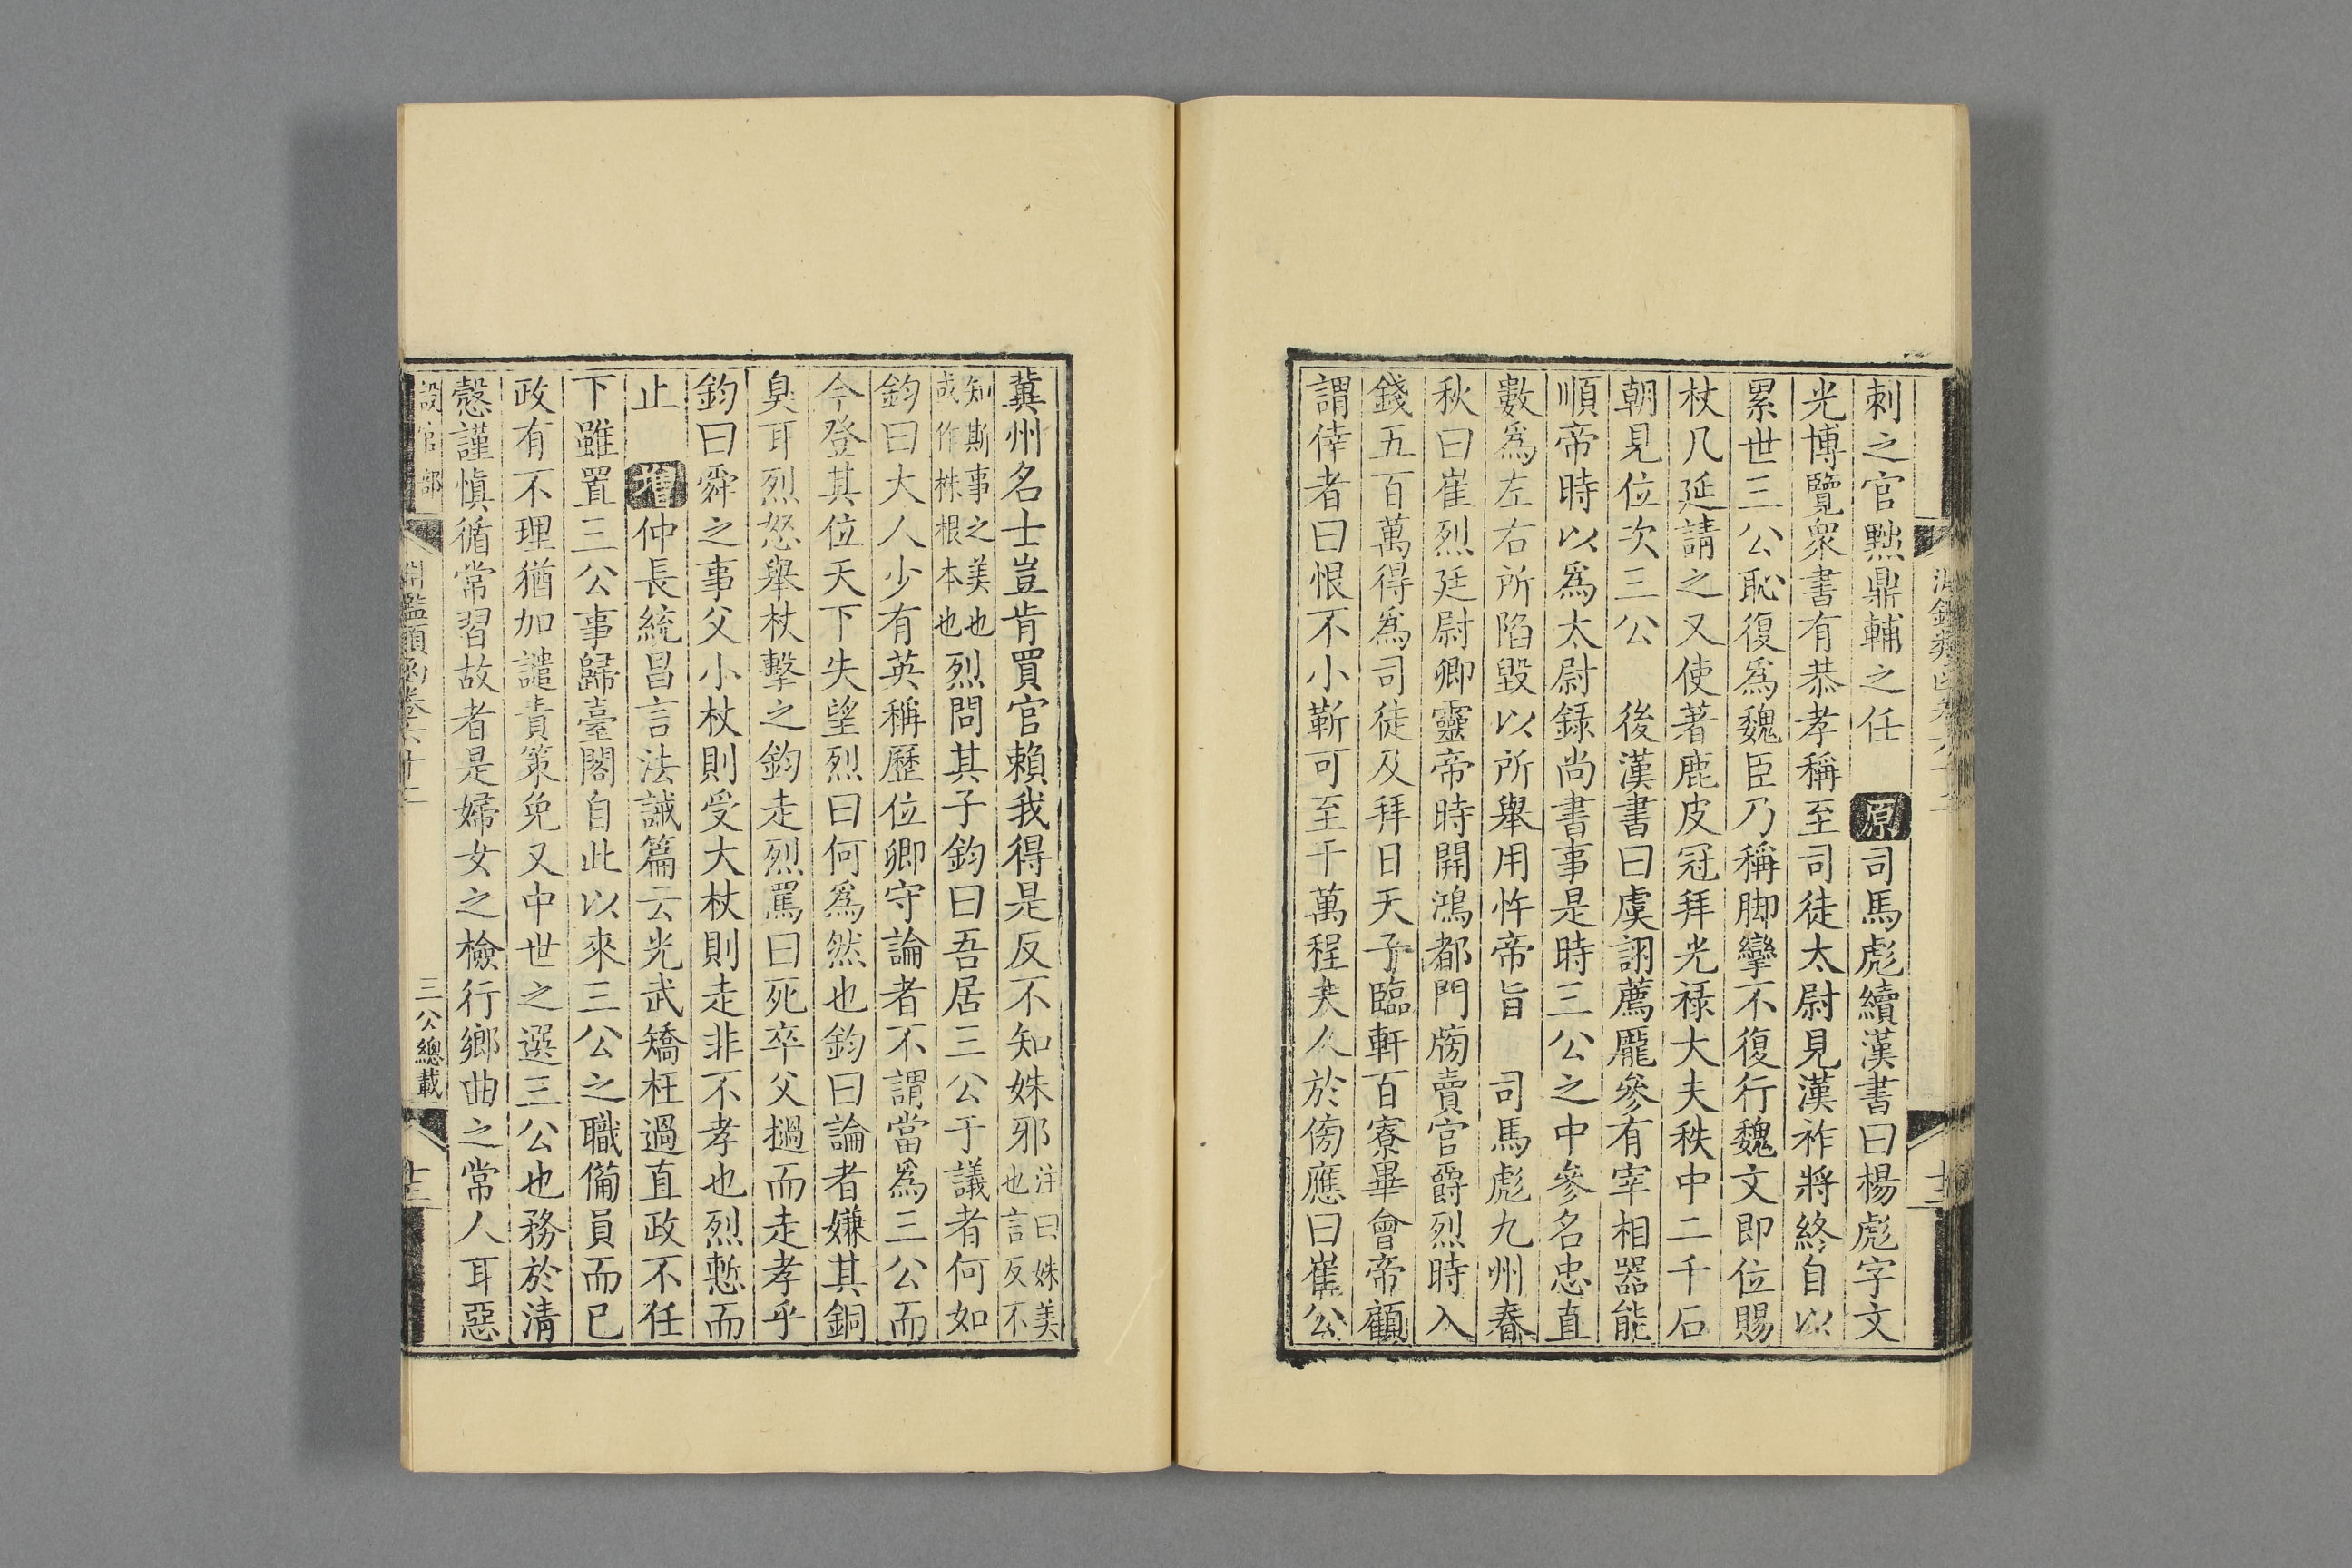 刺之官黜鼎輔之任 原 司馬彪續漢書曰楊彪字文
光博覽衆書有恭孝稱至司徒太尉見漢祚將終自以
累世三公恥復爲魏臣乃稱脚攣不復行魏文即位賜
杖几延請之又使著鹿皮冠拜光祿大夫秩中二千石
朝見位次三公 後漢書曰虞詡薦龐參有宰相器能
順帝時以爲太尉錄尚書事是時三公之中參名忠直
數爲左右所陷毀以所舉用忤帝旨 司馬彪九州春
秋曰崔烈廷尉卿靈帝時開鴻都門牓賣官爵烈時入
錢五百萬得爲司徒及拜日天子臨軒百寮畢會帝顧
謂倖者曰恨不小靳可至千萬程夫人於傍應曰崔公
冀州名士豈肯買官賴我得是反不知姝邪注曰姝美也言反不
知斯事之美也或作株根本也烈問其子鈞曰吾居三公于議者何如
鈞曰大人少有英稱歷位卿守論者不謂當爲三公而
今登其位天下失望烈曰何爲然也鈞曰論者嫌其銅
臭耳烈怒舉杖擊之鈞走烈罵曰死卒父撾而走孝乎
鈞曰舜之事父小杖則受大杖則走非不孝也烈慙而
止 增 仲長統昌言法誡篇云光武矯枉過直政不任
下雖置三公事歸臺閣自此以來三公之職備員而已
政有不理猶加譴責策免又中世之選三公也務於清
慤謹慎循常習故者是婦女之檢行鄉曲之常人耳惡
設官部
淵鑑類函卷六十二
三公總載
十三